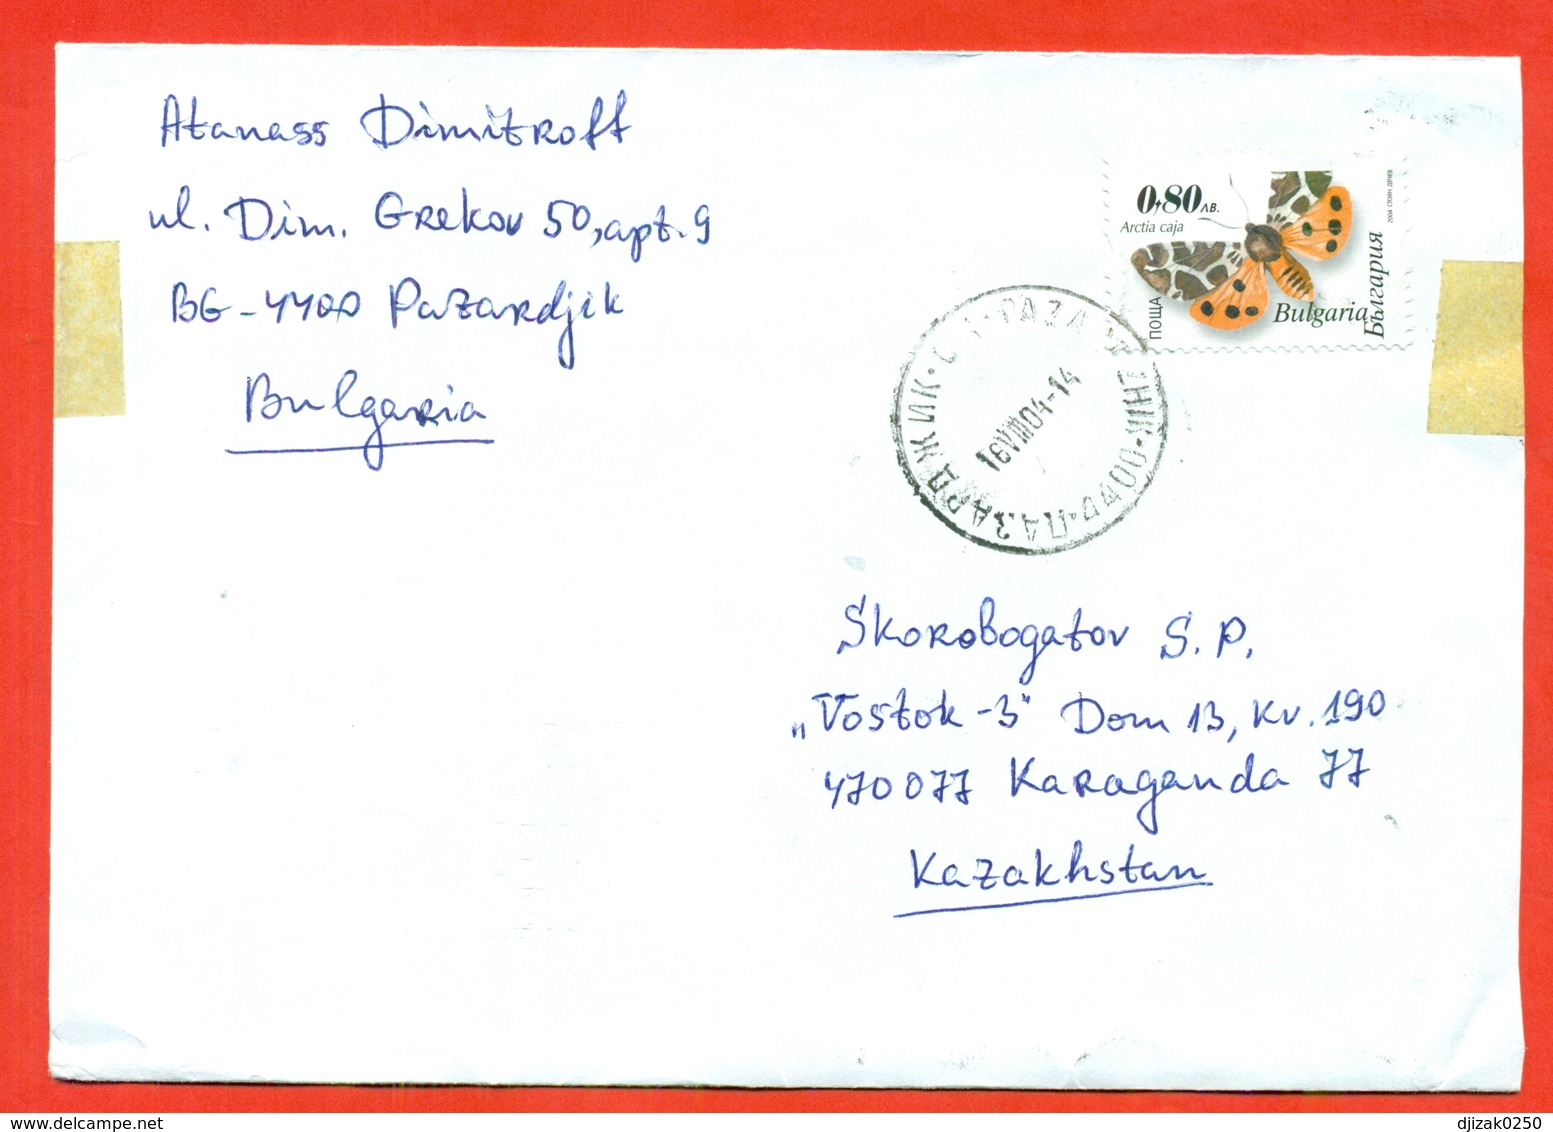 Atanass Dimitroff
ul. Dim. Grekov 50, apt. 9
BG-4400 Pazardjik
Bulgaria
0,80 ЛВ.
Arctia caja
ПОЩА
Bulgaria
България
2004 СТОЯН ДЕЧЕВ
ПАЗАРДЖИК
4400
16VIII04-14
Skorobogatov S. P.
„Vostok-3" Dom 13, kv. 190
470077 Karaganda 77
Kazakhstan
djizak0250